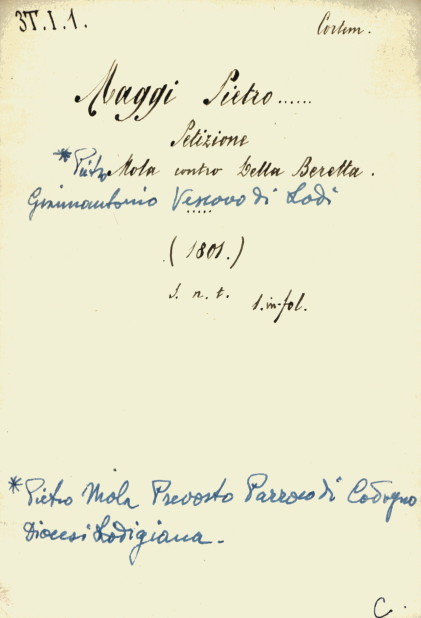 3T.I.1.
Cortem.
Maggi Pietro......
Petizione
* Pietro Mola contro Della Beretta.
Giannantonio Vescovo di Lodi
.....
(1801.)
S. n. t. 1. in-fol.
* Pietro Mola Prevosto Parroco di Codogno
Diocesi Lodigiana.-
C.